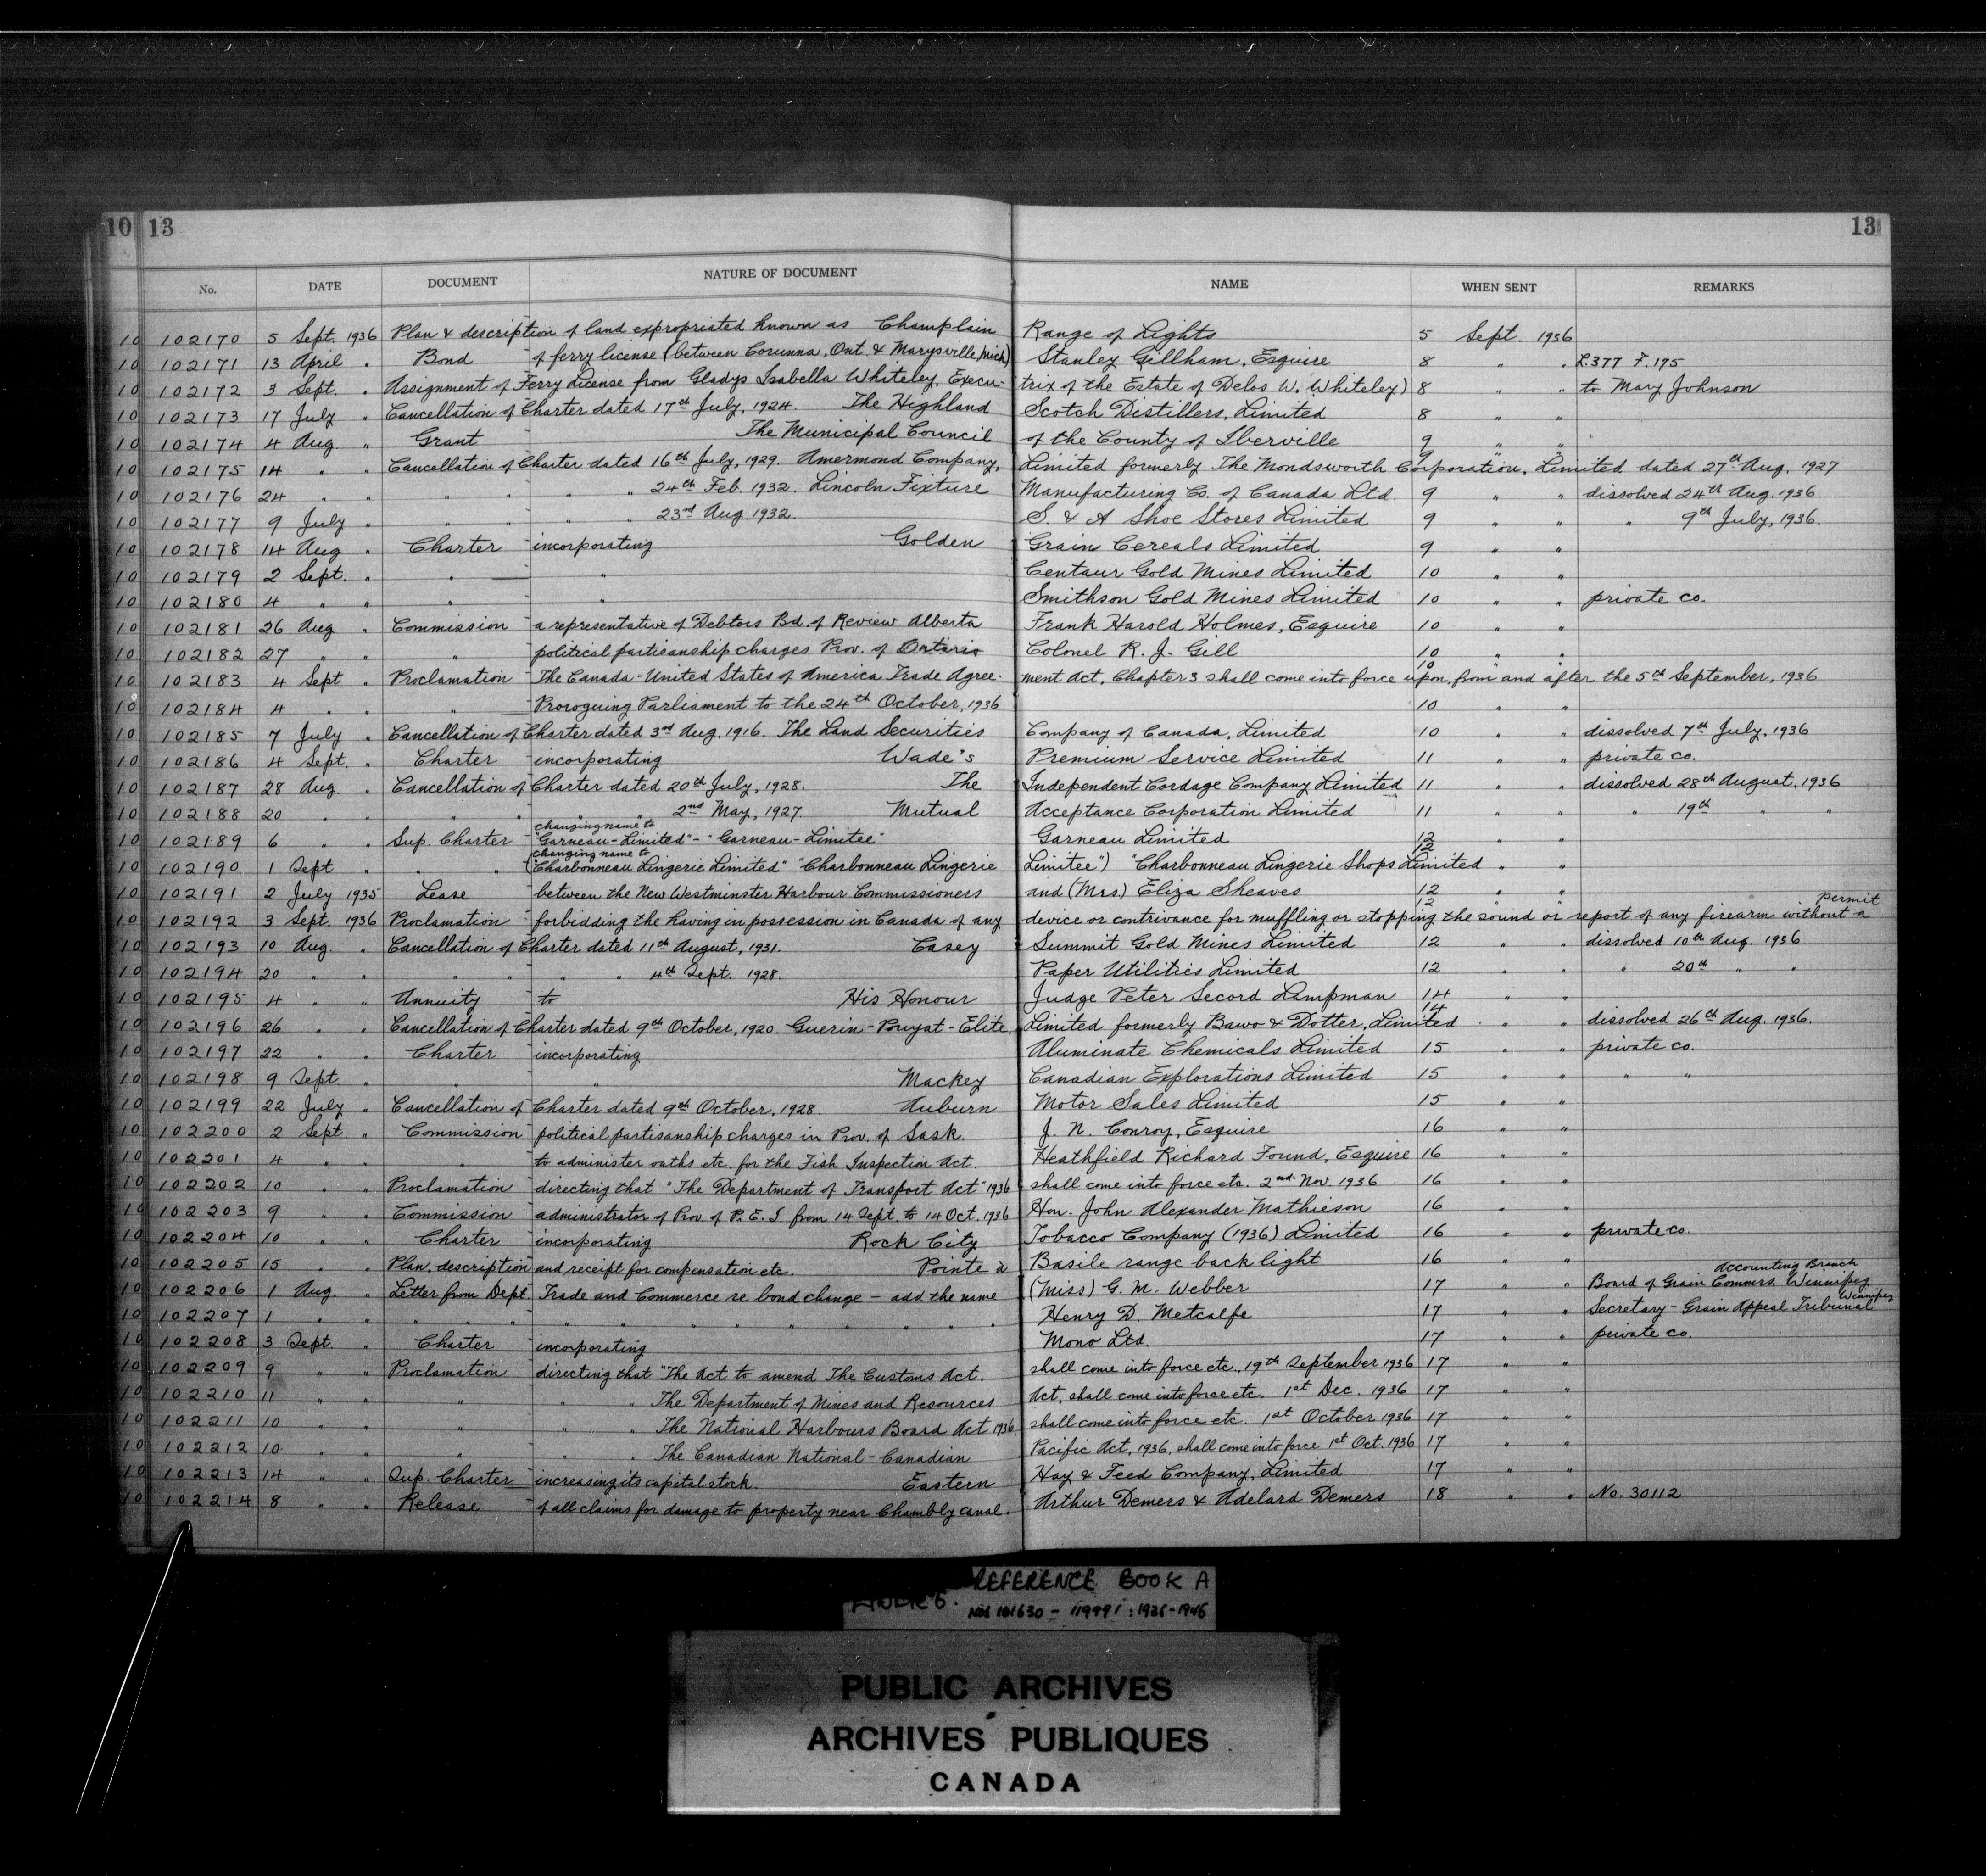 10 13 13
No. DATE DOCUMENT NATURE OF DOCUMENT NAME WHEN SENT REMARKS
10 102170 5 Sept. 1936 Plan & description of land expropriated known as Champlain Range of Lights 5 Sept. 1936
10 102171 13 April " Bond of ferry license (between Corunna, Ont. & Marysville, Mich) Stanley Gillham, Esquire 8 " " L.377 F.195
10 102172 3 Sept. " Assignment of Ferry License from Gladys Isabella Whiteley, Execu- trix of the Estate of Delos W. Whiteley) 8 " " to Mary Johnson
10 102173 17 July " Cancellation of Charter dated 17th July, 1924. The Highland Scotch Distillers, Limited 8 " "
10 102174 4 Aug " Grant The Municipal Council of the County of Iberville 9 " "
10 102175 14 " " Cancellation of Charter dated 16th July, 1929. Amermond Company, Limited formerly The Mondsworth Corporation, Limited dated 27th Aug, 1927 9
10 102176 24 " " " " " " 24th Feb. 1932. Lincoln Fixture Manufacturing Co. of Canada Ltd. 9 " " dissolved 24th Aug. 1936
10 102177 9 July " " " " " 23rd Aug 1932. S. & A Shoe Stores Limited 9 " " " 9th July, 1936.
10 102178 14 Aug " Charter incorporating Golden Grain Cereals Limited 9 " "
10 102179 2 Sept. " " " Centaur Gold Mines Limited 10 " "
10 102180 4 " " " " Smithson Gold Mines Limited 10 " " private co.
10 102181 26 Aug " Commission a representative of Debtors Bd. of Review Alberta Frank Harold Holmes, Esquire 10 " "
10 102182 27 " " " political partisanship charges Prov. of Ontario Colonel R. J. Gill 10 " "
10 102183 4 Sept " Proclamation The Canada-United States of America Trade Agree- ment Act, Chapter 3 shall come into force upon, from and after the 5th September, 1936 10 " "
10 102184 4 " " " Proroguing Parliament to the 24th October, 1936 10 " "
10 102185 7 July " Cancellation of Charter dated 3rd Aug. 1916. The Land Securities Company of Canada, Limited 10 " " dissolved 7th July, 1936
10 102186 4 Sept. " Charter incorporating Wade's Premium Service Limited 11 " " private co.
10 102187 28 Aug. " Cancellation of Charter dated 20th July, 1928. The Independent Cordage Company Limited 11 " " dissolved 28th August, 1936
10 102188 20 " " " " " " 2nd May, 1927. Mutual Acceptance Corporation Limited 11 " " " 19th " "
10 102189 6 " " Sup. Charter changing name to "Garneau-Limited"-"Garneau-Limitee" Garneau Limited 12 " "
10 102190 1 Sept " " " changing name to ("Charbonneau Lingerie Limited" "Charbonneau Lingerie Limitee") "Charbonneau Lingerie Shops Limited 12 " "
10 102191 2 July 1935 Lease between the New Westminster Harbour Commissioners and (Mrs) Eliza Sheaves 12 " "
10 102192 3 Sept. 1936 Proclamation forbidding the having in possession in Canada of any device or contrivance for muffling or stopping the sound or report of any firearm without a permit 12 " "
10 102193 10 Aug. " Cancellation of Charter dated 11th August, 1931. Casey Summit Gold Mines Limited 12 " " dissolved 10th Aug. 1936
10 102194 20 " " " " " " 4th Sept. 1928. Paper Utilities Limited 12 " " " 20th " "
10 102195 4 " " Annuity to His Honour Judge Peter Secord Lampman 14 " "
10 102196 26 " " Cancellation of Charter dated 9th October, 1920. Guerin-Pouyat-Elite, Limited formerly Bawo & Dotter, Limited 14 " " dissolved 26th Aug. 1936.
10 102197 22 " " Charter incorporating Aluminate Chemicals Limited 15 " " private co.
10 102198 9 Sept. " " " Mackey Canadian Explorations Limited 15 " " " "
10 102199 22 July " Cancellation of Charter dated 9th October, 1928. Auburn Motor Sales Limited 15 " "
10 102200 2 Sept. " Commission political partisanship charges in Prov. of Sask. J. N. Conroy, Esquire 16 " "
10 102201 4 " " " to administer oaths etc. for the Fish Inspection Act. Heathfield Richard Found, Esquire 16 " "
10 102202 10 " " Proclamation directing that "The Department of Transport Act" 1936 shall come into force etc. 2nd Nov. 1936 16 " "
10 102203 9 " " Commission administrator of Prov. of P. E. I. from 14 Sept. to 14 Oct. 1936 Hon. John Alexander Mathieson 16 " "
10 102204 10 " " Charter incorporating Rock City Tobacco Company (1936) Limited 16 " " private co.
10 102205 15 " " Plan, description and receipt for compensation etc. Pointe à Basile range back light 16 " "
10 102206 1 Aug. " Letter from Dept. Trade and Commerce re bond change - add the name (Miss) G. M. Webber 17 " " Accounting Branch Board of Grain Commrs. Winnipeg
10 102207 1 " " " " " " " " " " " " " Henry D. Metcalfe 17 " " Secretary-Grain Appeal Tribunal Winnipeg
10 102208 3 Sept. " Charter incorporating Mono Ltd. 17 " " private co.
10 102209 9 " " Proclamation directing that "The Act to amend The Customs Act. shall come into force etc., 19th September 1936 17 " "
10 102210 11 " " " " " The Department of Mines and Resources Act, shall come into force etc. 1st Dec. 1936 17 " "
10 102211 10 " " " " " The National Harbours Board Act 1936 shall come into force etc. 1st October 1936 17 " "
10 102212 10 " " " " " The Canadian National-Canadian Pacific Act, 1936, shall come into force 1st Oct. 1936 17 " "
10 102213 14 " " Sup. Charter increasing its capital stock. Eastern Hay & Feed Company, Limited 17 " "
10 102214 8 " " Release of all claims for damage to property near Chambly canal. Arthur Demers & Adelard Demers 18 " " No. 30112
REFERENCE BOOK A
NOS 101630 - 119991 : 1936-1946
PUBLIC ARCHIVES
ARCHIVES PUBLIQUES
CANADA